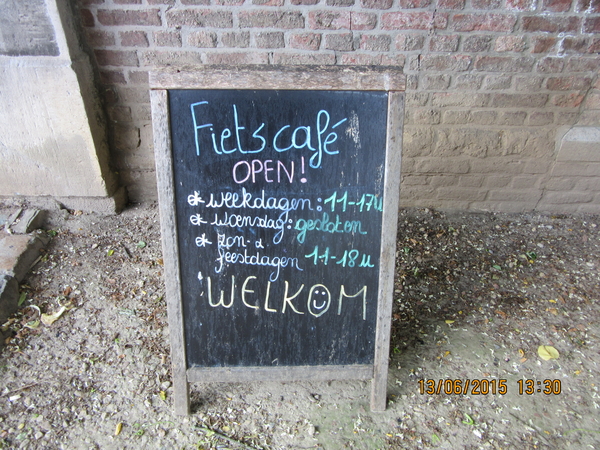 Fietscafé
OPEN!
* weekdagen: 11-17u
* woensdag: gesloten
* zon- &
feestdagen 11-18u
WELKOM
13/06/2015 13:30